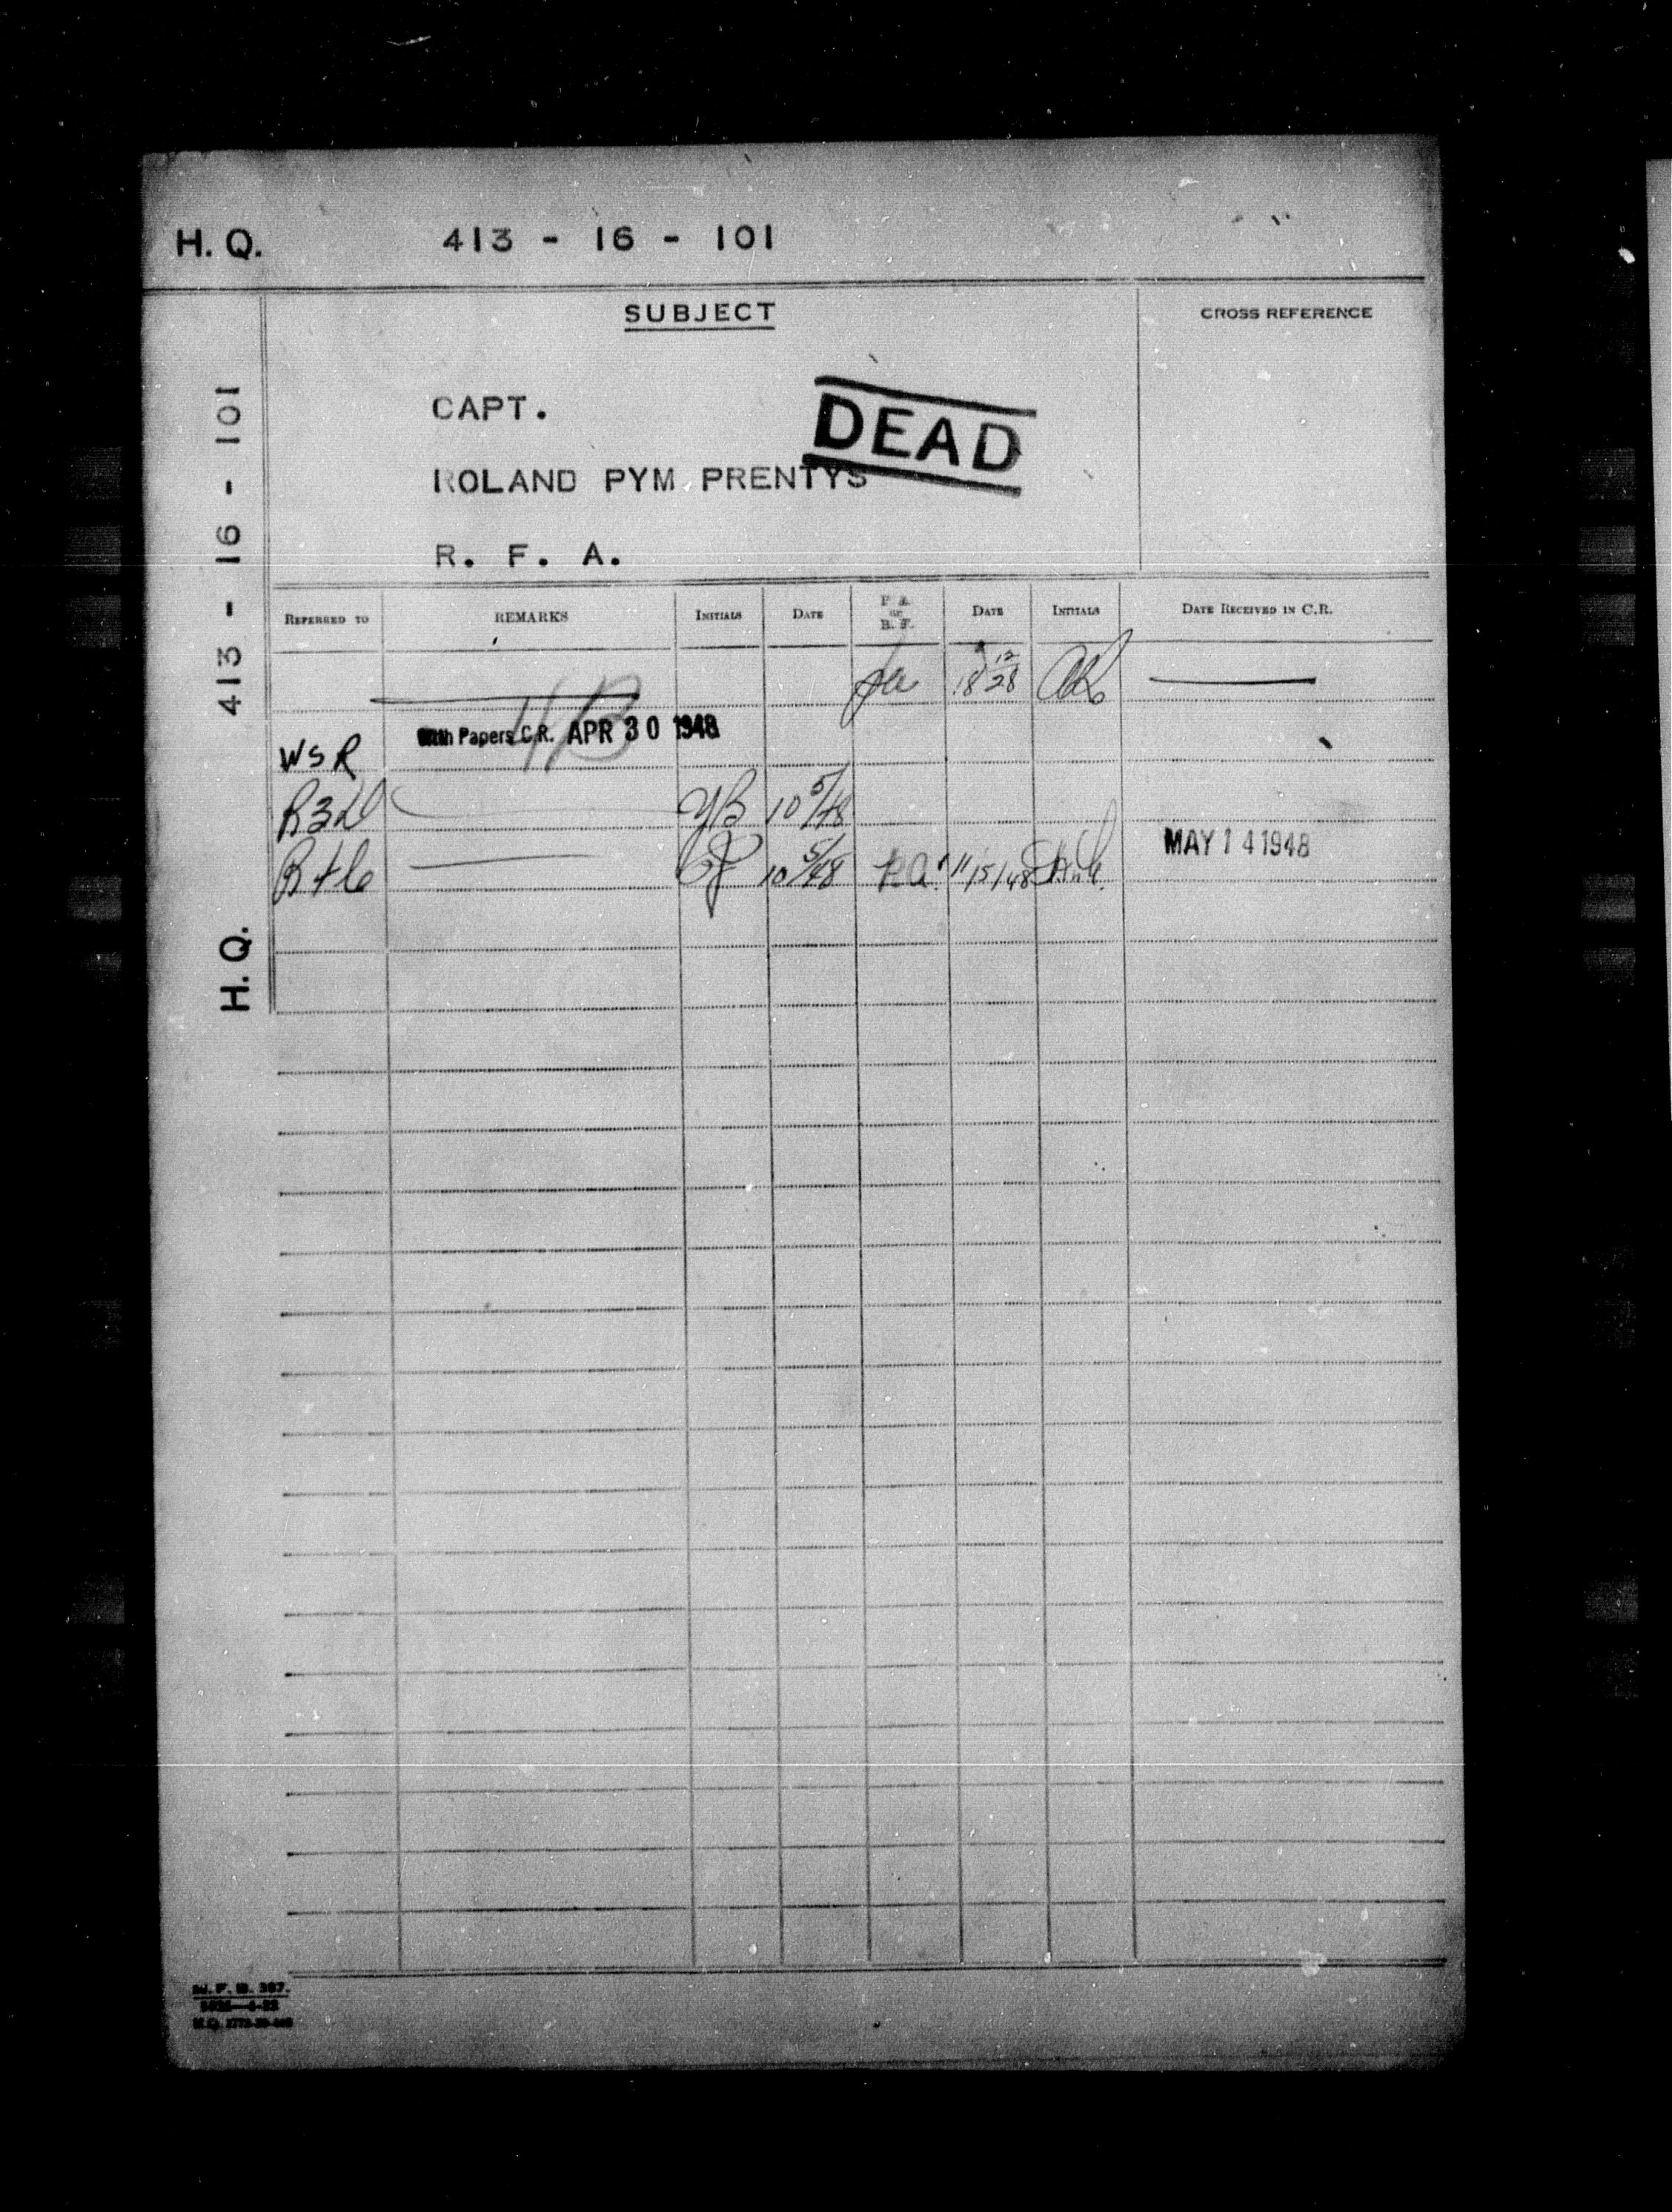 H. Q. 413 - 16 - 101
SUBJECT
CROSS REFERENCE
CAPT.
DEAD
ROLAND PYM PRENTYS
R. F. A.
413 - 16 - 101
H. Q.
REFERRED TO REMARKS INITIALS DATE P. A. or B. F. DATE INITIALS DATE RECEIVED IN C.R.
18 12/28
WSR With Papers C.R. APR 30 1948
R3D YB 10 5/48
10 5/48 P.A. 11/5/48 MAY 14 1948